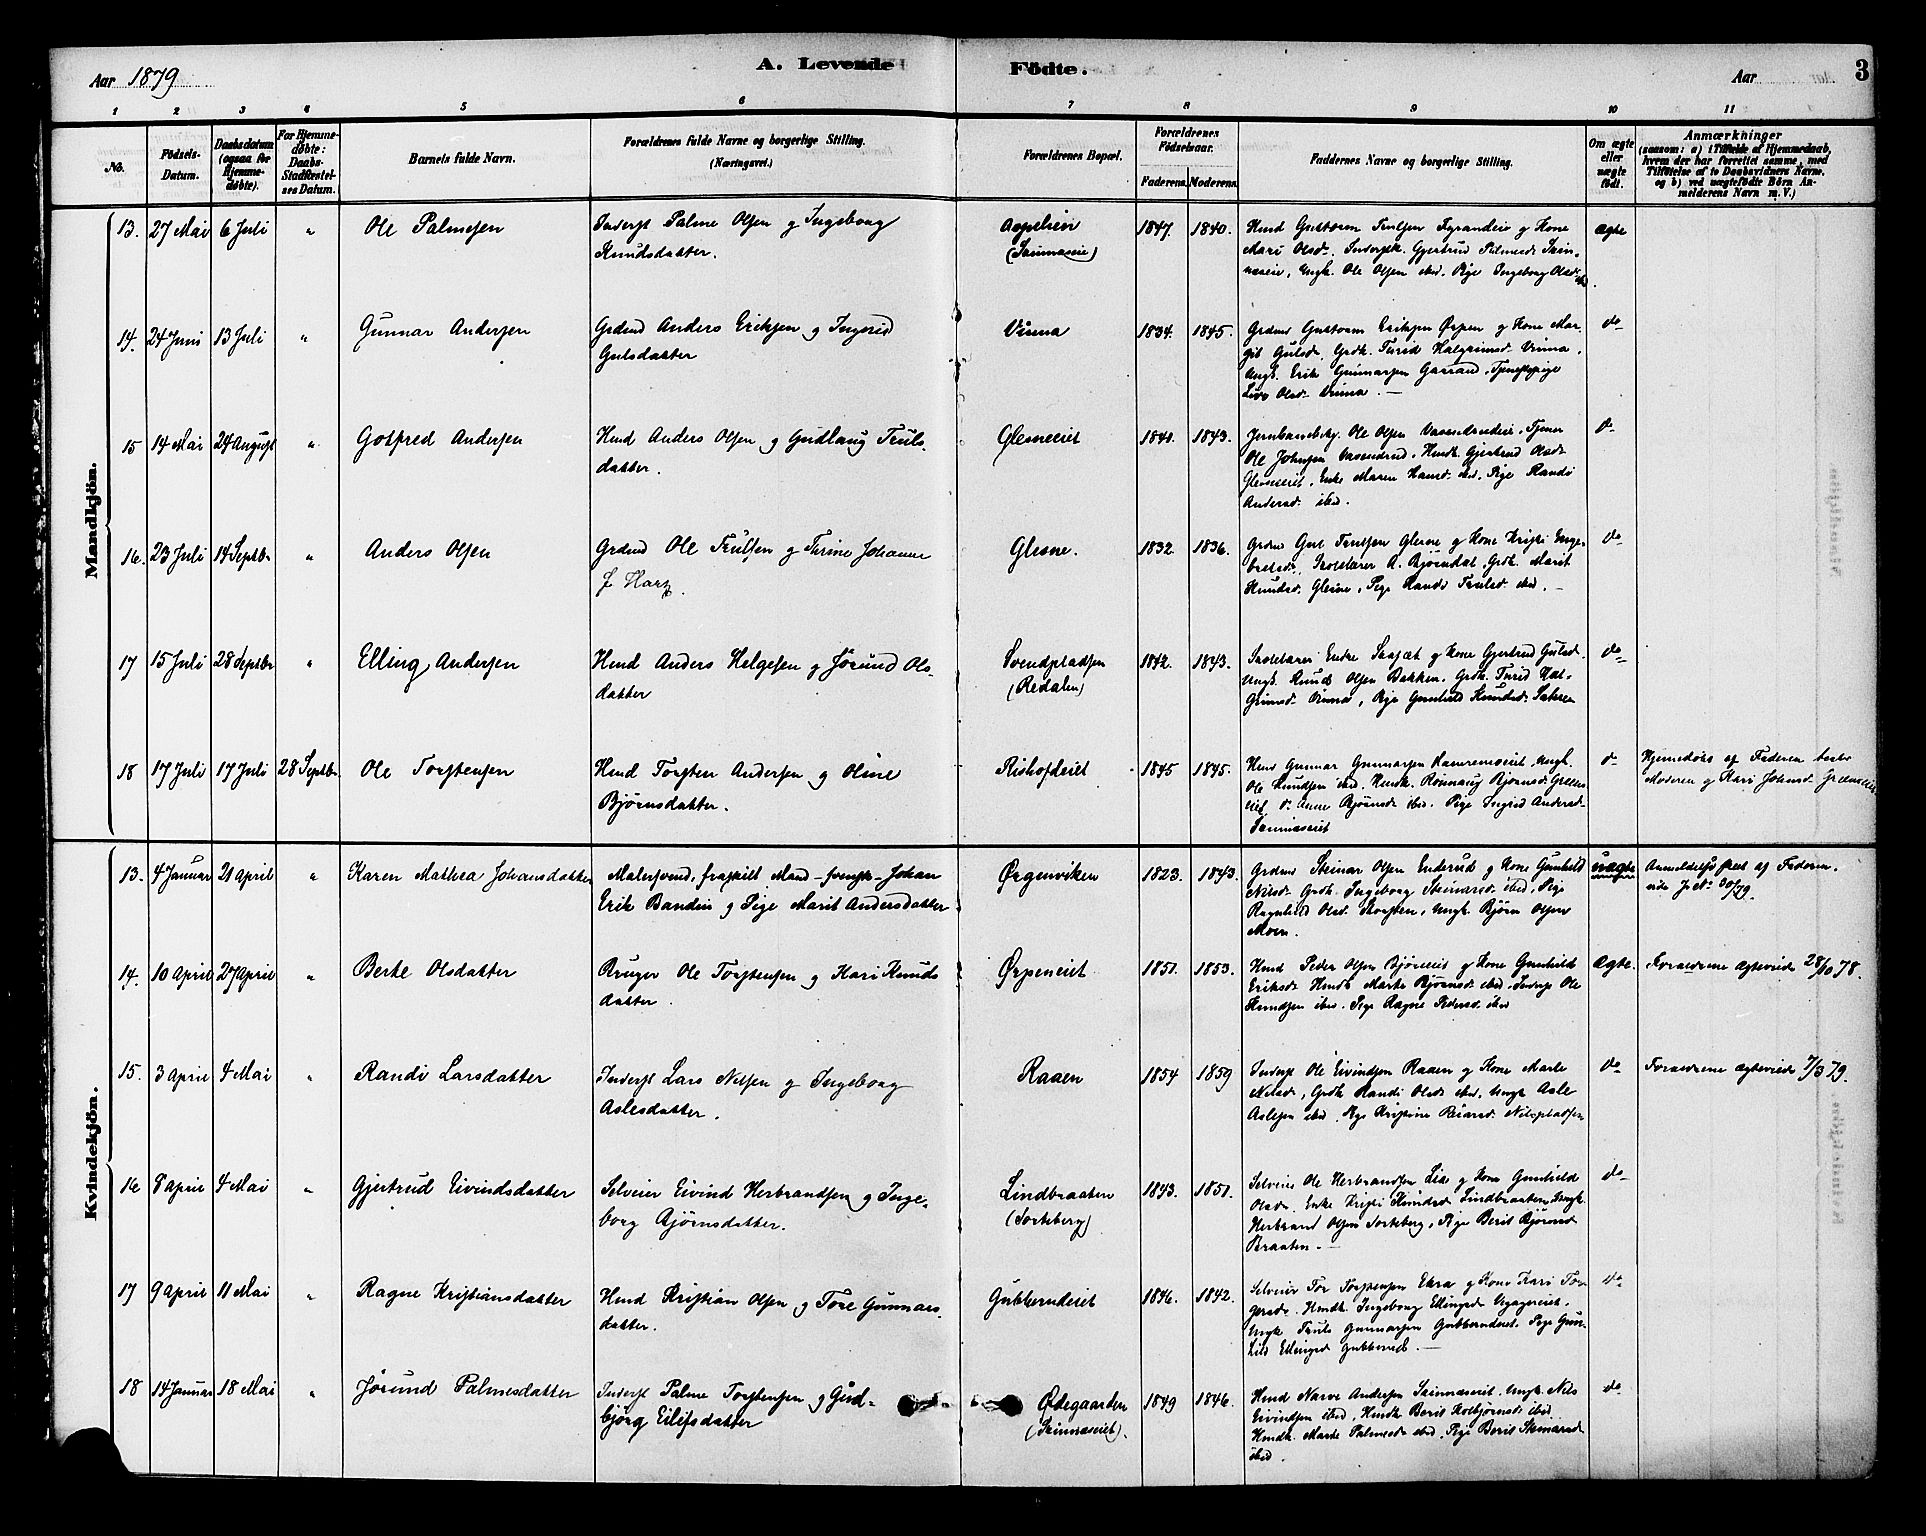 Aar 1879
A. Levende
Födte.
Aar
3
1 2 3 4 5 6 7 8 9 10 11
No.
Födsels-
Datum.
Daabsdatum
(ogsaa for
Hjemme-
döbte).
For Hjemme-
döbte:
Daabs-
Stadfæstel-
ses Datum.
Barnets fulde Navn.
Forældrenes fulde Navne og borgerlige Stilling.
(Næringsvei.)
Forældrenes Bopæl.
Forældrenes
Födselsaar.
Faderens. Moderens.
Faddernes Navne og borgerlige Stilling.
Om ægte
eller
uægte
födt.
Anmærkninger
(saasom: a) i Tilfælde af Hjemmedaab,
hvem der har forrettet samme, med
Tilföielse af to Daabsvidners Navne,
og b) ved uægtefödte Börn An-
melderens Navn m. V.)
Mandkjön.
13. 27 Mai 6 Juli " Ole Palmesen
Inderst Palme Olsen og Ingeborg
Knudsdatter.
1847. 1840.
Mari Olsd.
ægte
14. 24 Juni 13 Juli " Gunnar Andersen
Grdmd Anders Eriksen og Ingerid
Gulsdatter
Viuma
1834. 1845.
Grdmd Guttorm Eriksen Ørpen og Kone Mar-
git Gulsd. Grdk. Turid Halgrimsd. Viuma.
Ungk. Erik Gunnarsen Gaarand. Tjenestepige
Livo Olsd. Viuma. —
do
15 14 Mai 24 August " Gotfred Andersen
Hmd Anders Olsen og Gudlaug Truls-
datter.
Glesneeiet
1840. 1843.
Glesneeiet. Enke Maren Hansd. ibid. Pige Randi
Andersd. ibid.
do
16. 23 Juli 14 Septbr " Anders Olsen
Grdmd Ole Trulsen og Turine Johanne
f. Harz.
Glesne.
1832 1836.
Grdmd Gul Trulsen Glesne og Kone Kristi Enge-
bretsd., Skolelærer A. Bjørndal, Grdk. Marit
Knudsd. Glesne, Pige Randi Trulsd. ibid. —
do
17 15 Juli 28 Septbr " Elling Andersen
Hmd Anders Helgesen og Jørund Ols-
datter
Svendpladsen
(Redalen)
1842. 1843.
Ungk. Knud Olsen Bakken. Grdk. Turid Hal-
grimsd. Viuma, Pige Gunhild Knudsd. Sataren
do
18 17 Juli 17 Juli 28 Septbr. Ole Torstensen
Hmd Torsten Andersen og Oline
Bjørnsdatter.
Rishofdeiet
1845 1845.
Ole Knudsen ibid. Hmdk. Rønnaug Bjørnsd. Green-
eiet, do Anne Bjørnsd. ibid. Pige Ingrid Andersd.
do
Hjemmedøbt af Faderen
Moderen og Kari Johnsd. Greeneiet
Kvindekjön.
13. 4 Januar 21 April " Karen Mathea Johansdatter
Malersvend, fraskilt Mand – svensk – Johan
Erik Bandin og Pige Marit Andersdatter
Ørgenviken
1823. 1843.
Grdmd Steinar Olsen Enderud og Kone Gunhild
Nilsd. Grdk. Ingeborg Steinarsd. ibid. Pige
Ragnhild Olsd. Skorsten, Ungk. Bjørn Olsen
Moen.
uægte
Anmeldelse skeet af Faderen.
vide J. No. 30/79.
14. 10 April 27 April " Berte Olsdatter
Bruger Ole Torstensen og Kari Knuds-
datter.
Ørpeneiet
1851. 1853.
Hmd Peder Olsen Bjøreeiet og Kone Gunhild
Eriksd. Hmdk. Marte Bjørnsd. ibid. Inderst Ole
Knudsen ibid. Pige Ragne Pedersd. ibid
ægte.
Forældrene ægteviede 28/10 78.
15. 3 April 4 Mai " Randi Larsdatter
Inderst Lars Nilsen og Ingeborg
Aslesdatter.
Raaen
1854 1859
Inderst Ole Eivindsen Raaen og Kone Marte
Nilsd., Grdk Randi Olsd. ibid. Ungk Asle
Aslesen ibid. Pige Kristine Reiarsd. Nilspladsen
do
Forældrene ægteviede 7/3 79.
16 8 April 4 Mai " Gjertrud Eivindsdatter
Selveier Eivind Herbrandsen og Inge-
borg Bjørnsdatter.
Lindbraaten
(Sorteberg)
1843. 1851.
Selveier Ole Herbrandsen Lid og Kone Gunhild
Olsd. Enke Kristi Knudsd. Lindbraaten, Ungk.
Herbrand Olsen Sorteberg, Pige Berit Bjørnsd.
Braaten. —
do
17 9 April 11 Mai " Ragne Kristiansdatter
Hmd Kristian Olsen og Tore Gunnars-
datter.
Gubberudeiet
1846. 1842.
Selveier Tor Torstensen Ekra og Kone Kari Tor-
gersd. Hmdk. Ingeborg Ellingsd.
Ungk. Truls Gunnarsen Gubberudeiet. Pige Gun-
hild Ellingsd. Gubberud. —
do
18 14 Januar 18 Mai " Jørund Palmesdatter
Inderst Palme Torstensen og Gud-
bjørg Eilifsdatter
Ødegaarden
(Skinnaseiet).
1849 1846.
Hmd Narve Andersen Skinnaseiet. Ungk. Nils
Eivindsen ibid. Hmdk. Berit Kolbjørnsd. ibid
Hmdk. Marte Palmesd. ibid. Pige Berit Steinarsd.
ibid.
do